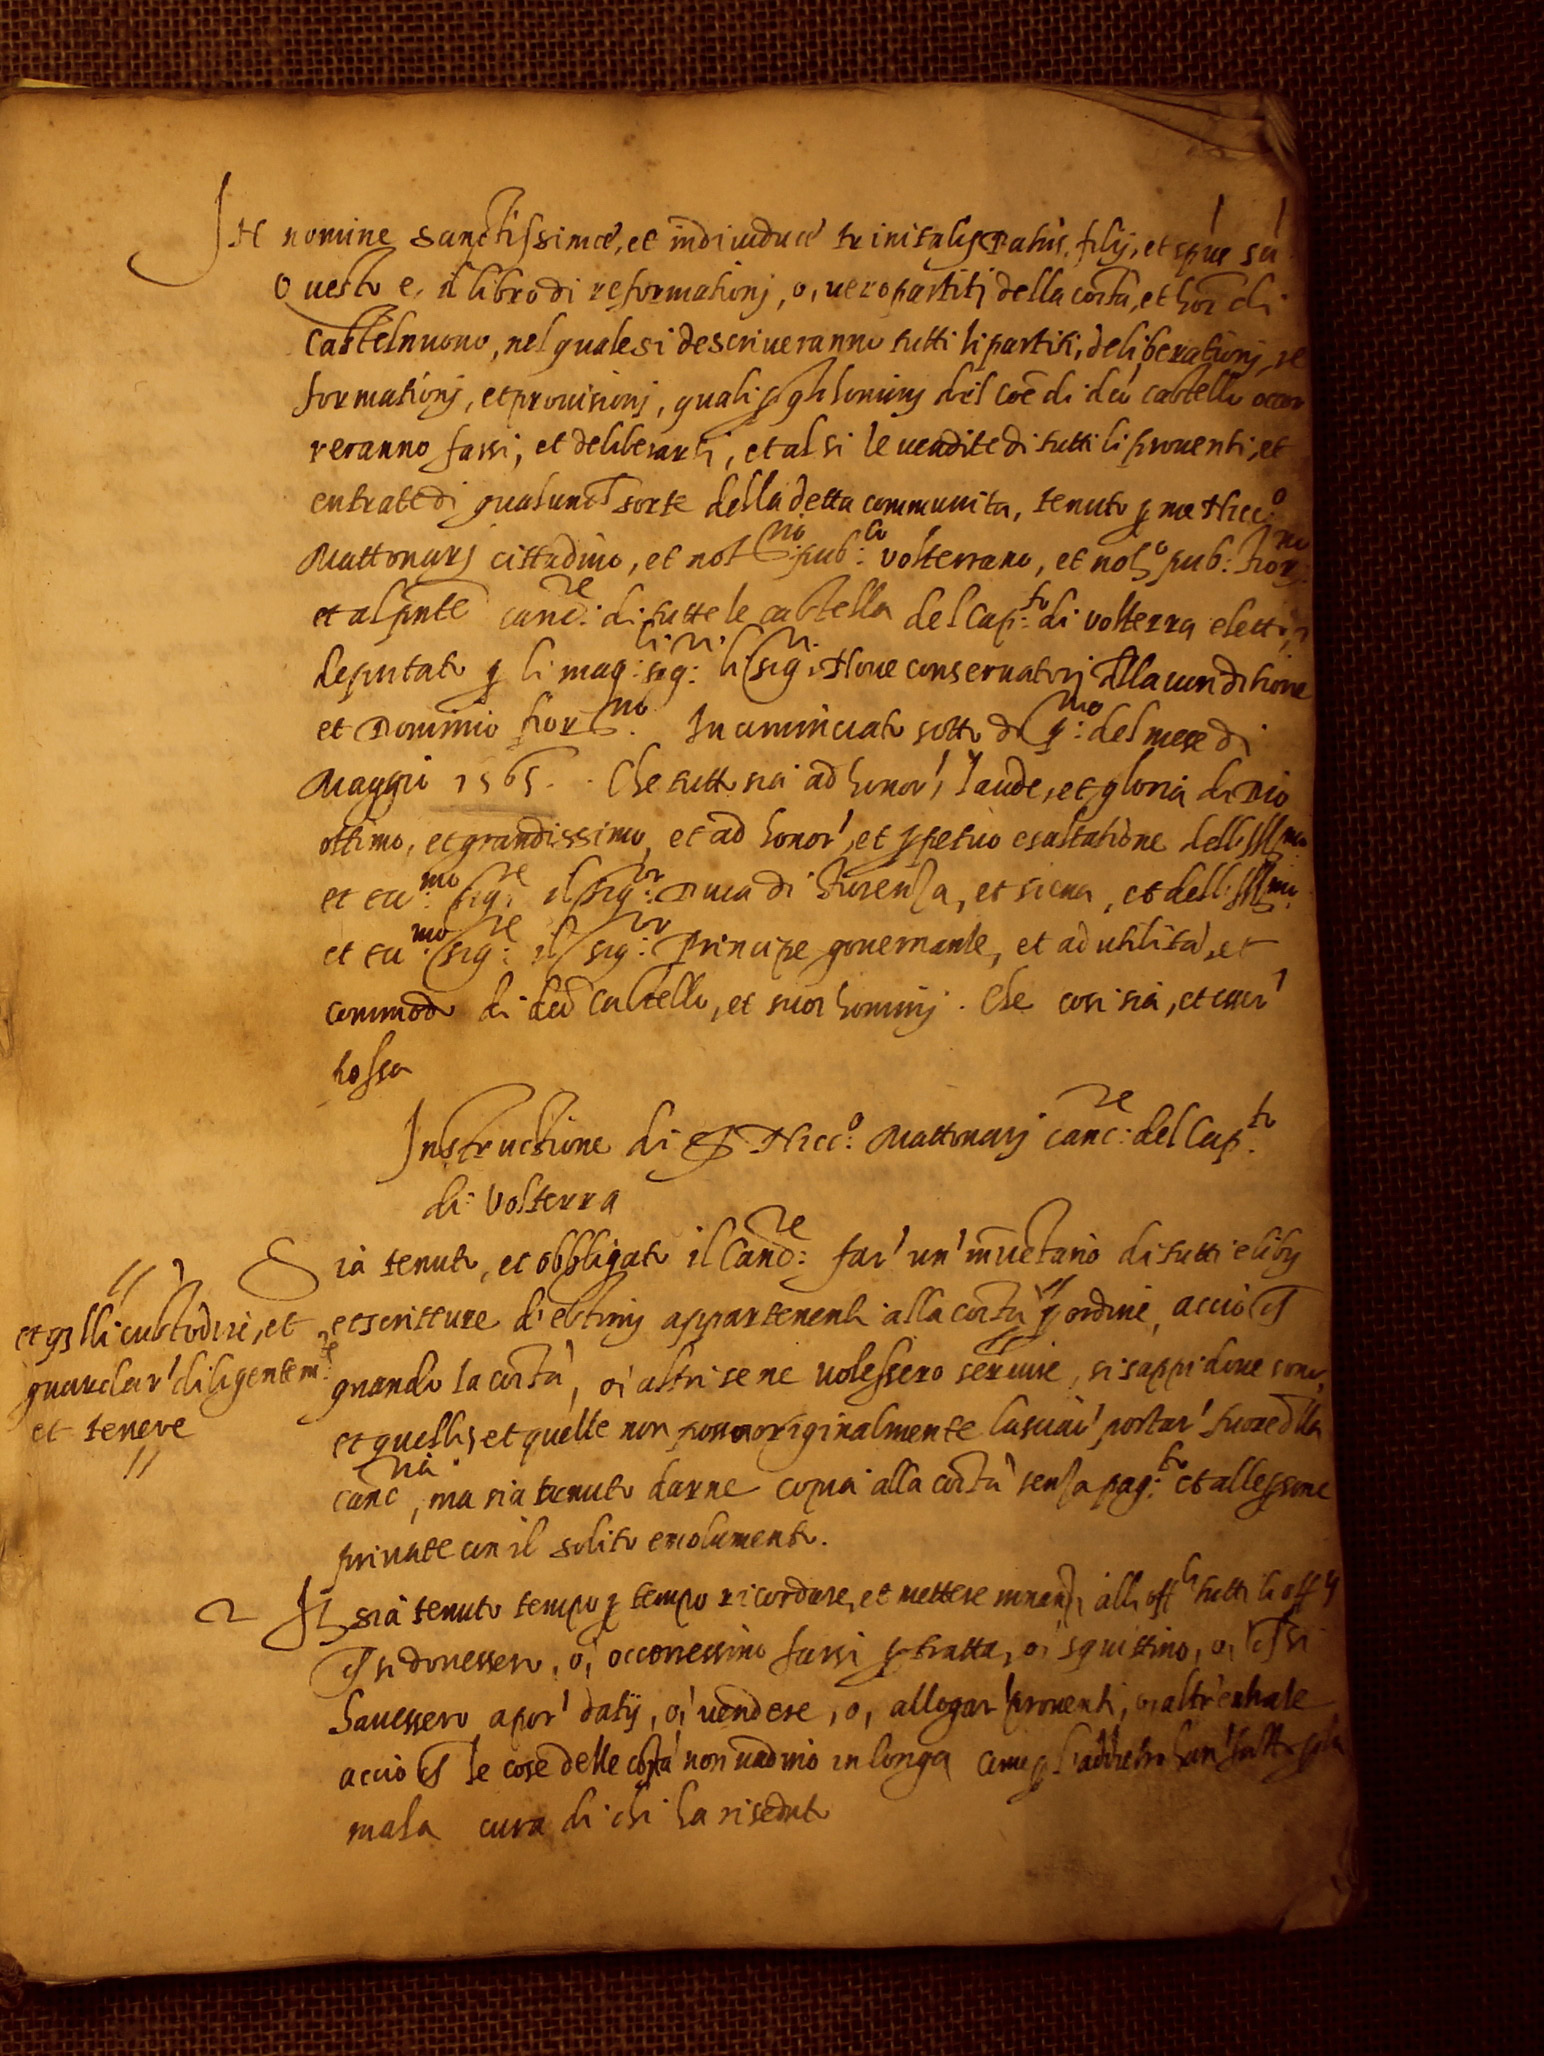 In nomine sanctissimae, et individuae trinitatis Patris, filij, et spus sti
Questo e, il libro di reformationj, o, vero partiti della coita, et hoi di
Castelnuovo, nel quale si descriveranno tutti li partiti, deliberationj, re
formationj, et provisionj, quali p gli hominj del coe di dco castello occor
reranno farsi, et deliberarsi, et al si le vendite di tutti li proventi, et
entrate di qualunch sorte della detta communita, tenuto p me Nicc:o
Mattonarj cittadino, et not:rio pub:co volterrano, et not:o pub: fior:no
et al pnte canc:re di tutte le castella del Cap:to di volterra eletto,
deputato p li mag:ci sig:ri li sig:ri Nove conservatorj della iurisditione
et Dominio fior:no. Incominciato sotto di p:mo del mese di
Maggio 1565. Che tutto sia ad honor', laude, et gloria di Dio
ottimo, et grandissimo, et ad honor', et ppetuo esaltatione dell Ill:mo
et ecc:mo sig:re il sig:or Duca di Fiorenza, et siena, et dell Ill:mo
et ecc:mo sig:re il sig:or Principe governante, et ad utilita, et
commodo di dco Castello, et suoi hominj. Che cosi sia, et esser'
possa
Instructione di S Nicc:o Mattonarj canc:re del Cap:to
di Volterra
Sia tenuto, et obbligato il Canc:re far' un' inventario di tutti e libij
et scritture d'estimj appartenenti alla coita p ordine, accio ch
et qlli custodire, et
guardar' diligentem:te
et tenere
quando la coita, o' altri se ne volessero servire, si sappi dove sono,
et quellj, et quelle non possa originalmente lasciar' portar' fuore dlla
canc:ria, ma sia tenuto darne copia alla coita senza pag:to et alle psone
private con il solito emolumento.
2 It sia tenuto tempo p tempo ricordare, et mettere innanzi alli off:li tutti li off:ij
ch si dovessero, o, occorressino farsi p tratta, o' squittino, o, ch si
havessero a por' datij, o, vendere, o, allogar' proventi, o, altr'entrate
accio ch le cose delle coita non vadino in longa come p l'addietro han' fatto p la
mala cura di chi ha riseduto